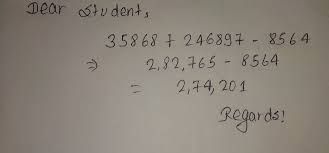 Dear Student,
35868 + 246897 - 8564
⇒ 2,82,765 - 8564
= 2,74,201
Regards!